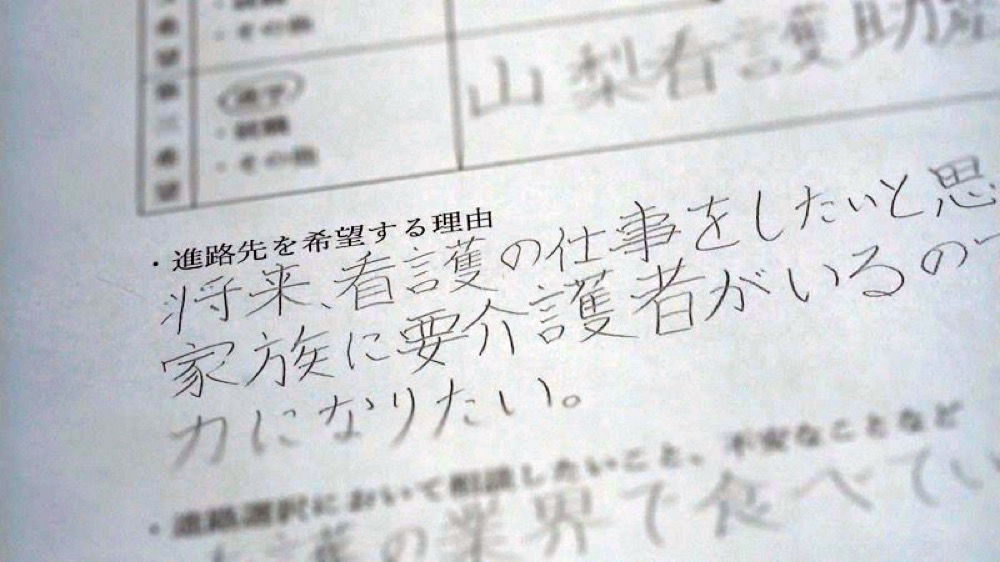 ・その他
望
第
三
希
望
進学
・就職
・その他
山梨看護助産
・進路先を希望する理由
将来、看護の仕事をしたいと思
家族に要介護者がいるので
力になりたい。
・進路選択において相談したいこと、不安なことなど
護の業界で食べてい